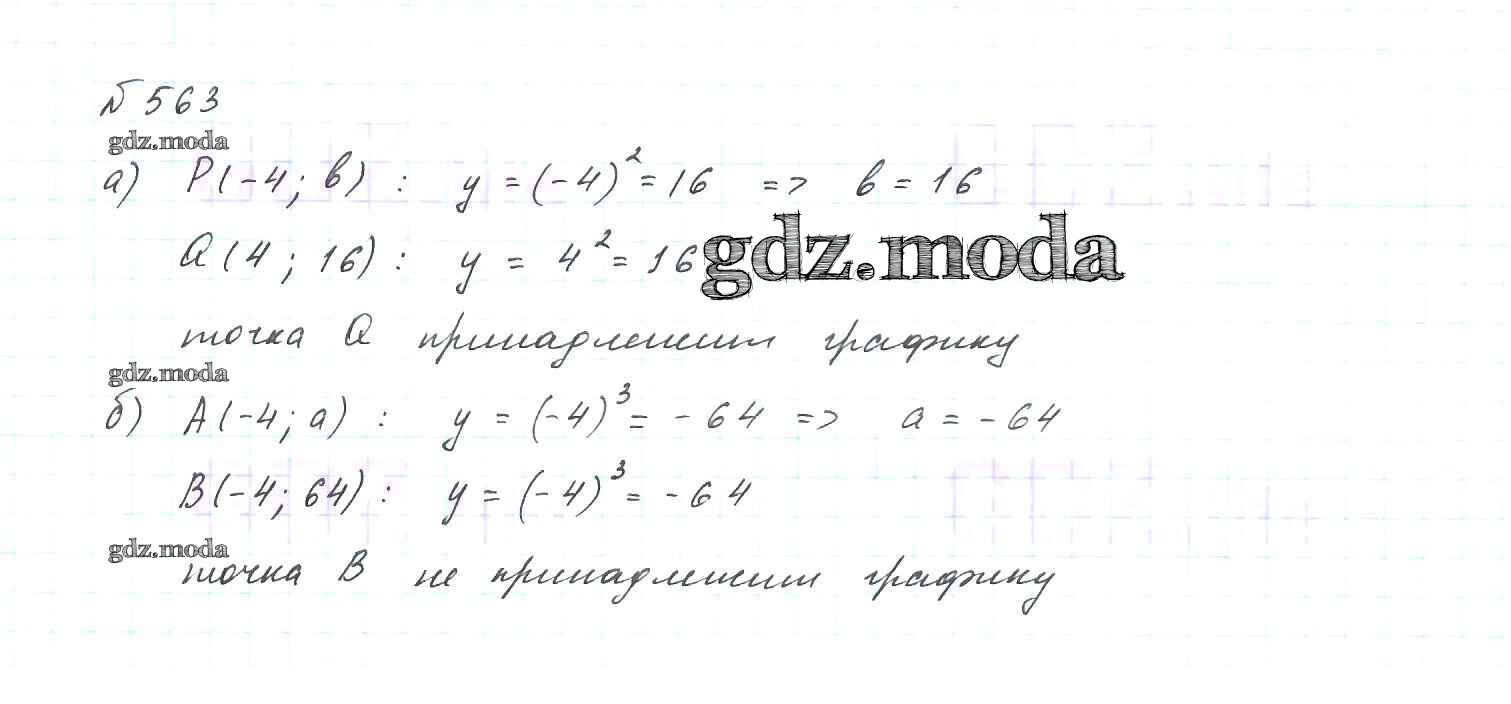 № 563
gdz.moda
а) P(-4; b) : y = (-4)² = 16 => b = 16
Q(4; 16) : y = 4² = 16
gdz.moda
точка Q принадлежит графику
gdz.moda
б) A(-4; a) : y = (-4)³ = -64 => a = -64
B(-4; 64) : y = (-4)³ = -64
gdz.moda
точка B не принадлежит графику